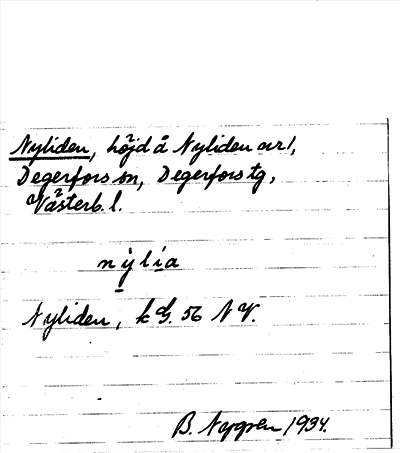 Nyliden, höjd å Nyliden av 1,
Degerfors sn, Degerfors tg,
Västerb. l.
nylia
Nyliden, k G. 56 NV.
B. Nygren 1934.